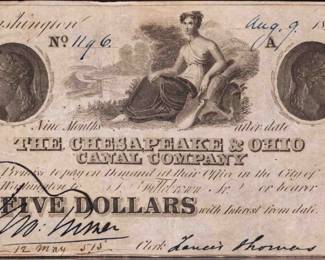 ashington Aug. 9. 18
No 1196. A
Nine Months after date
THE CHESAPEAKE & OHIO
CANAL COMPANY
Promise to pay on demand at their Office in the City of
Washington to or bearer
FIVE DOLLARS with Interest from date.
12 May 515 Clerk Thomas